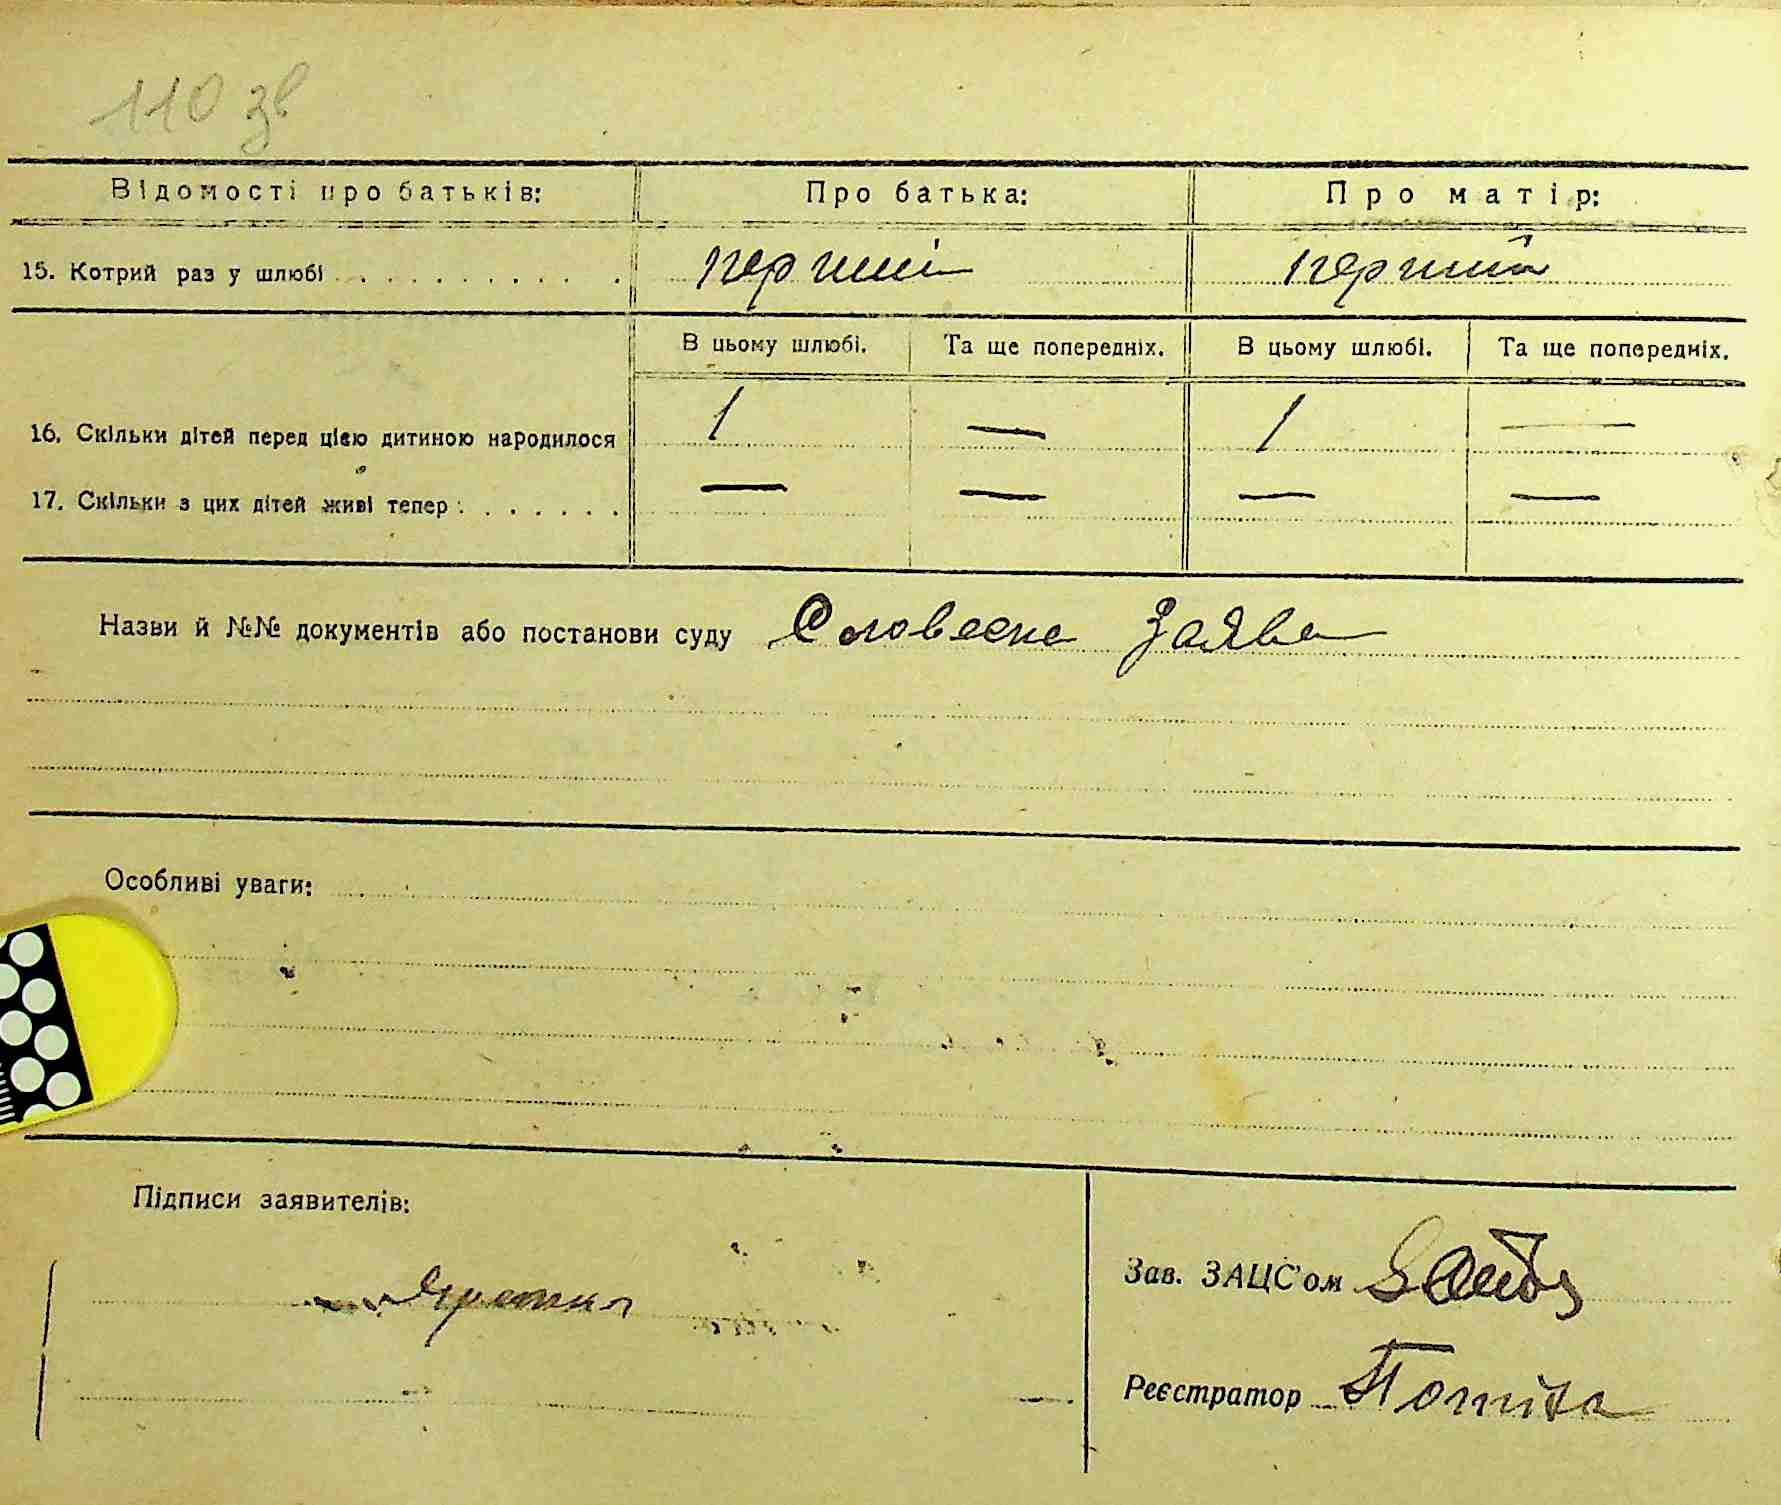 110 зв
Відомості про батьків: Про батька: Про матір:
15. Котрий раз у шлюбі . . . . . . . . . . . перший перший
В цьому шлюбі. Та ще попередніх. В цьому шлюбі. Та ще попередніх.
16. Скільки дітей перед цією дитиною народилося 1 — 1 —
17. Скільки з цих дітей живі тепер . . . . . . . — — — —
Назви й №№ документів або постанови суду Словесна Заява
Особливі уваги:
Підписи заявителів:
Зав. ЗАЦС'ом
Реєстратор